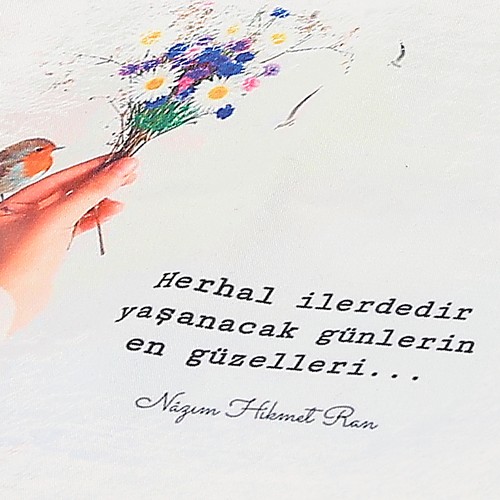 Herhal ilerdedir
yaşanacak günlerin
en güzelleri...
Nâzım Hikmet Ran